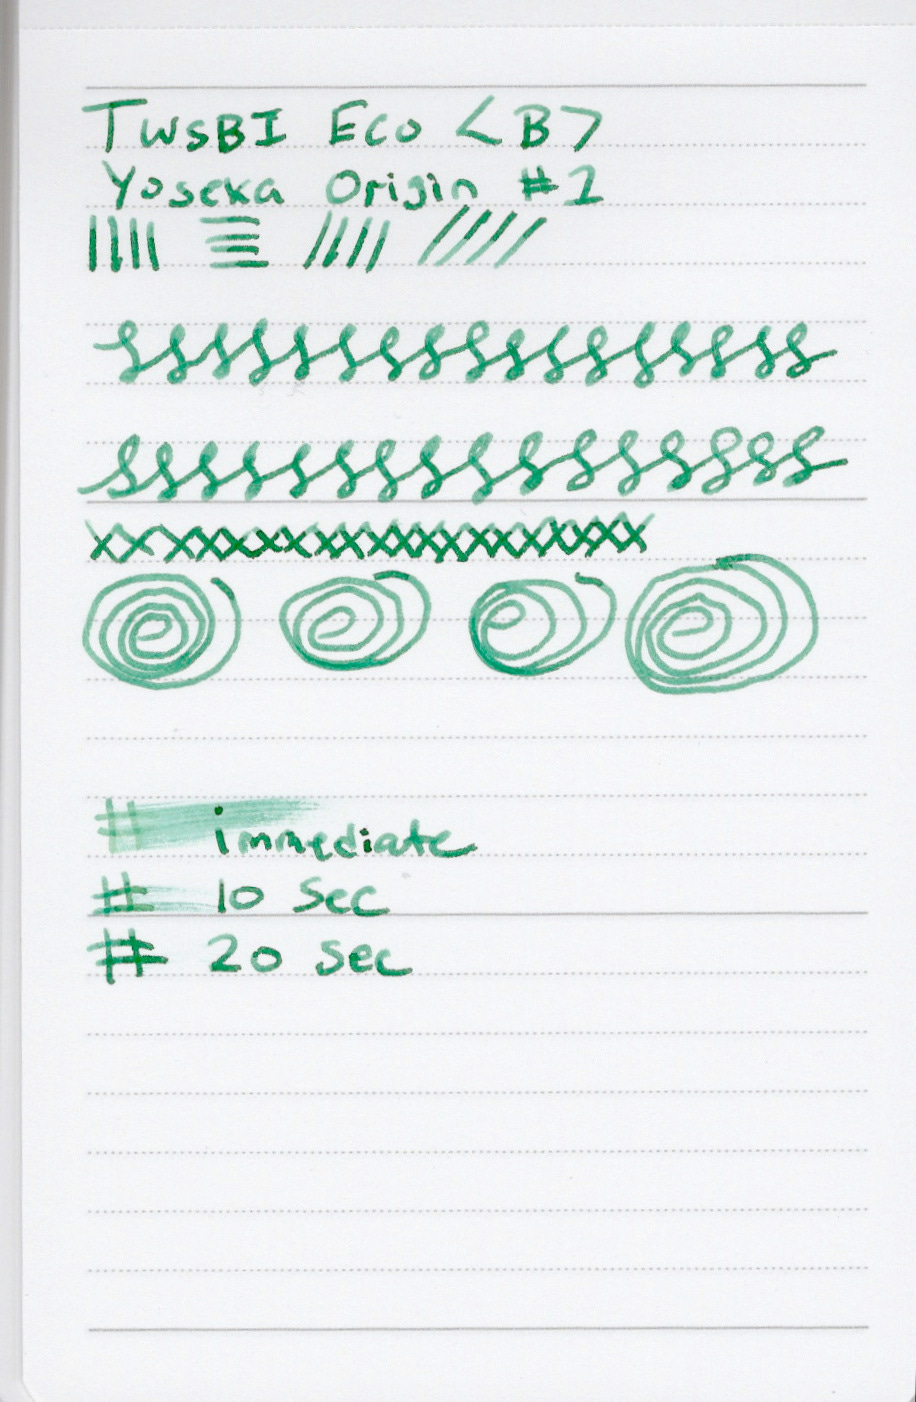 TWSBI Eco <B>
Yoseka Origin #1
# immediate
# 10 Sec
# 20 Sec